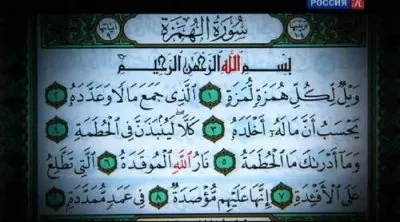 РОССИЯ К
سُورَةُ الهُمَزَةِ
بِسْمِ اللَّهِ الرَّحْمَٰنِ الرَّحِيمِ
وَيْلٌ لِّكُلِّ هُمَزَةٍ لُّمَزَةٍ ١ الَّذِي جَمَعَ مَالًا وَعَدَّدَهُ ٢
يَحْسَبُ أَنَّ مَالَهُ أَخْلَدَهُ ٣ كَلَّا لَيُنبَذَنَّ فِي الْحُطَمَةِ ٤
وَمَا أَدْرَاكَ مَا الْحُطَمَةُ ٥ نَارُ اللَّهِ الْمُوقَدَةُ ٦ الَّتِي تَطَّلِعُ
عَلَى الْأَفْئِدَةِ ٧ إِنَّهَا عَلَيْهِم مُّؤْصَدَةٌ ٨ فِي عَمَدٍ مُّمَدَّدَةٍ ٩